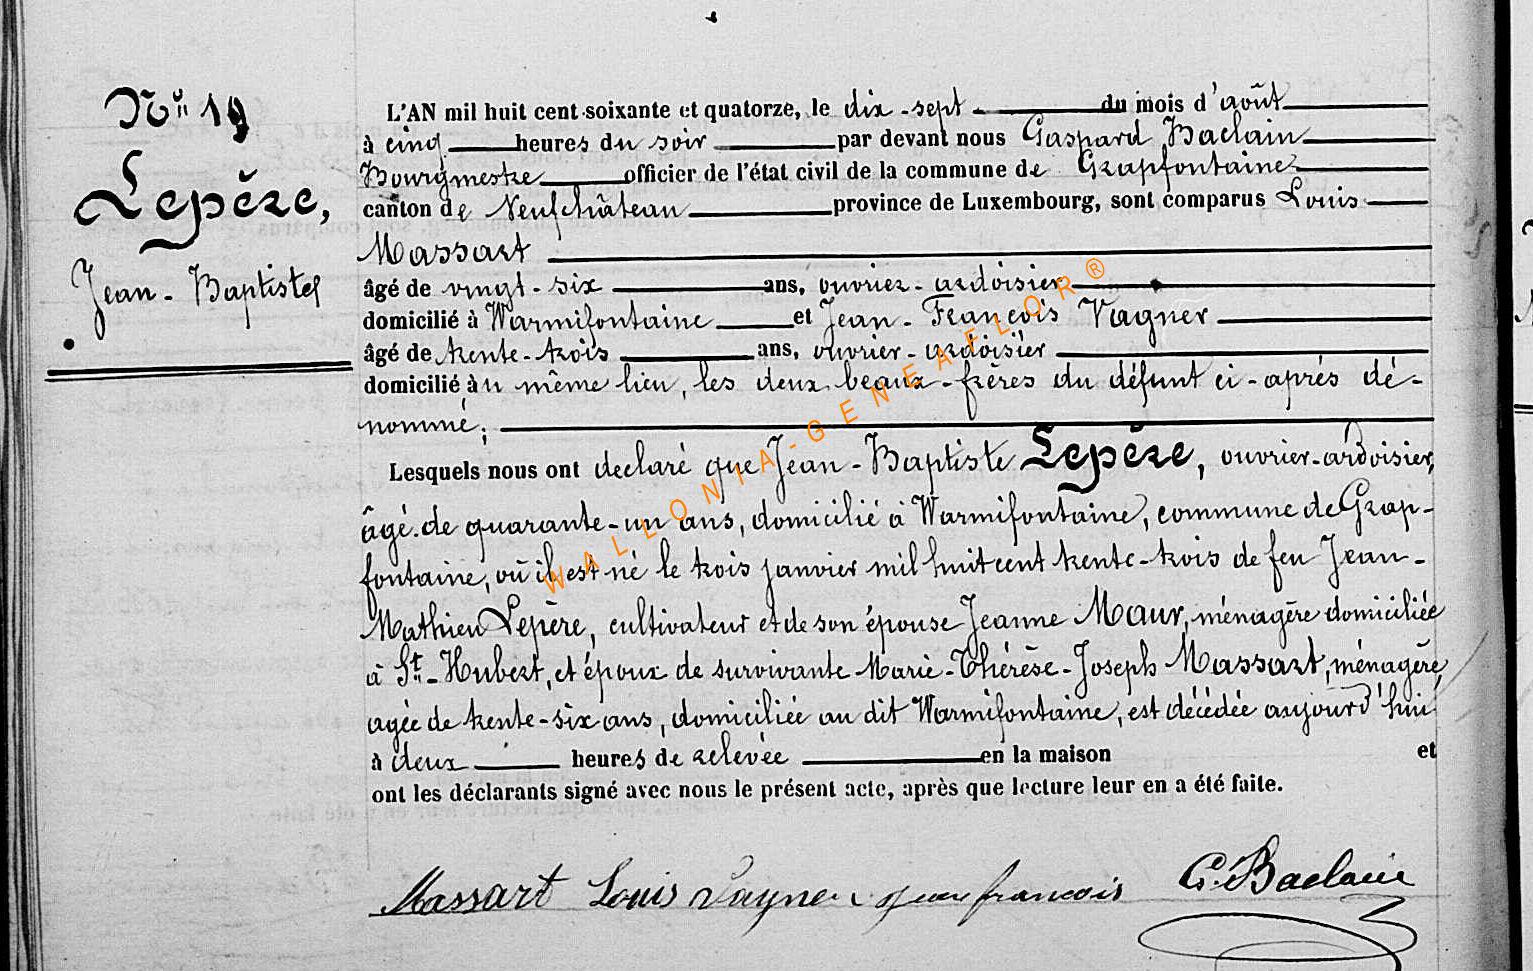 N° 19
Lepère,
Jean-Baptiste
L'AN mil huit cent soixante et quatorze, le dix-sept du mois d'août
à cinq heures du soir par devant nous Gaspard Baclain
Bourgmestre officier de l'état civil de la commune de Grapfontaine
canton de Neufchâteau province de Luxembourg, sont comparus Louis
Massart
âgé de vingt-six ans, ouvrier-ardoisier
domicilié à Warmifontaine et Jean-François Vagner
âgé de trente-trois ans, ouvrier-ardoisier
domicilié au même lieu, les deux beaux-frères du défunt ci-après dé-
nommé;
Lesquels nous ont declaré que Jean-Baptiste Lepère, ouvrier-ardoisier,
âgé de quarante-un ans, domicilié à Warmifontaine, commune de Grap-
fontaine, où il est né le trois janvier mil huit cent trente-trois de feu Jean-
Mathieu Lepère, cultivateur et de son épouse Jeanne Maur, ménagère domiciliée
à St-Hubert, et époux de survivante Marie-Thérèse-Joseph Massart, ménagère,
agée de trente-six ans, domiciliée au dit Warmifontaine, est décédée aujourd'hui
à deux heures de relevée en la maison et
ont les déclarants signé avec nous le présent acte, après que lecture leur en a été faite.
Massart Louis Vagner jean francois G. Baclain
WALLONIA-GENEAFLOR®